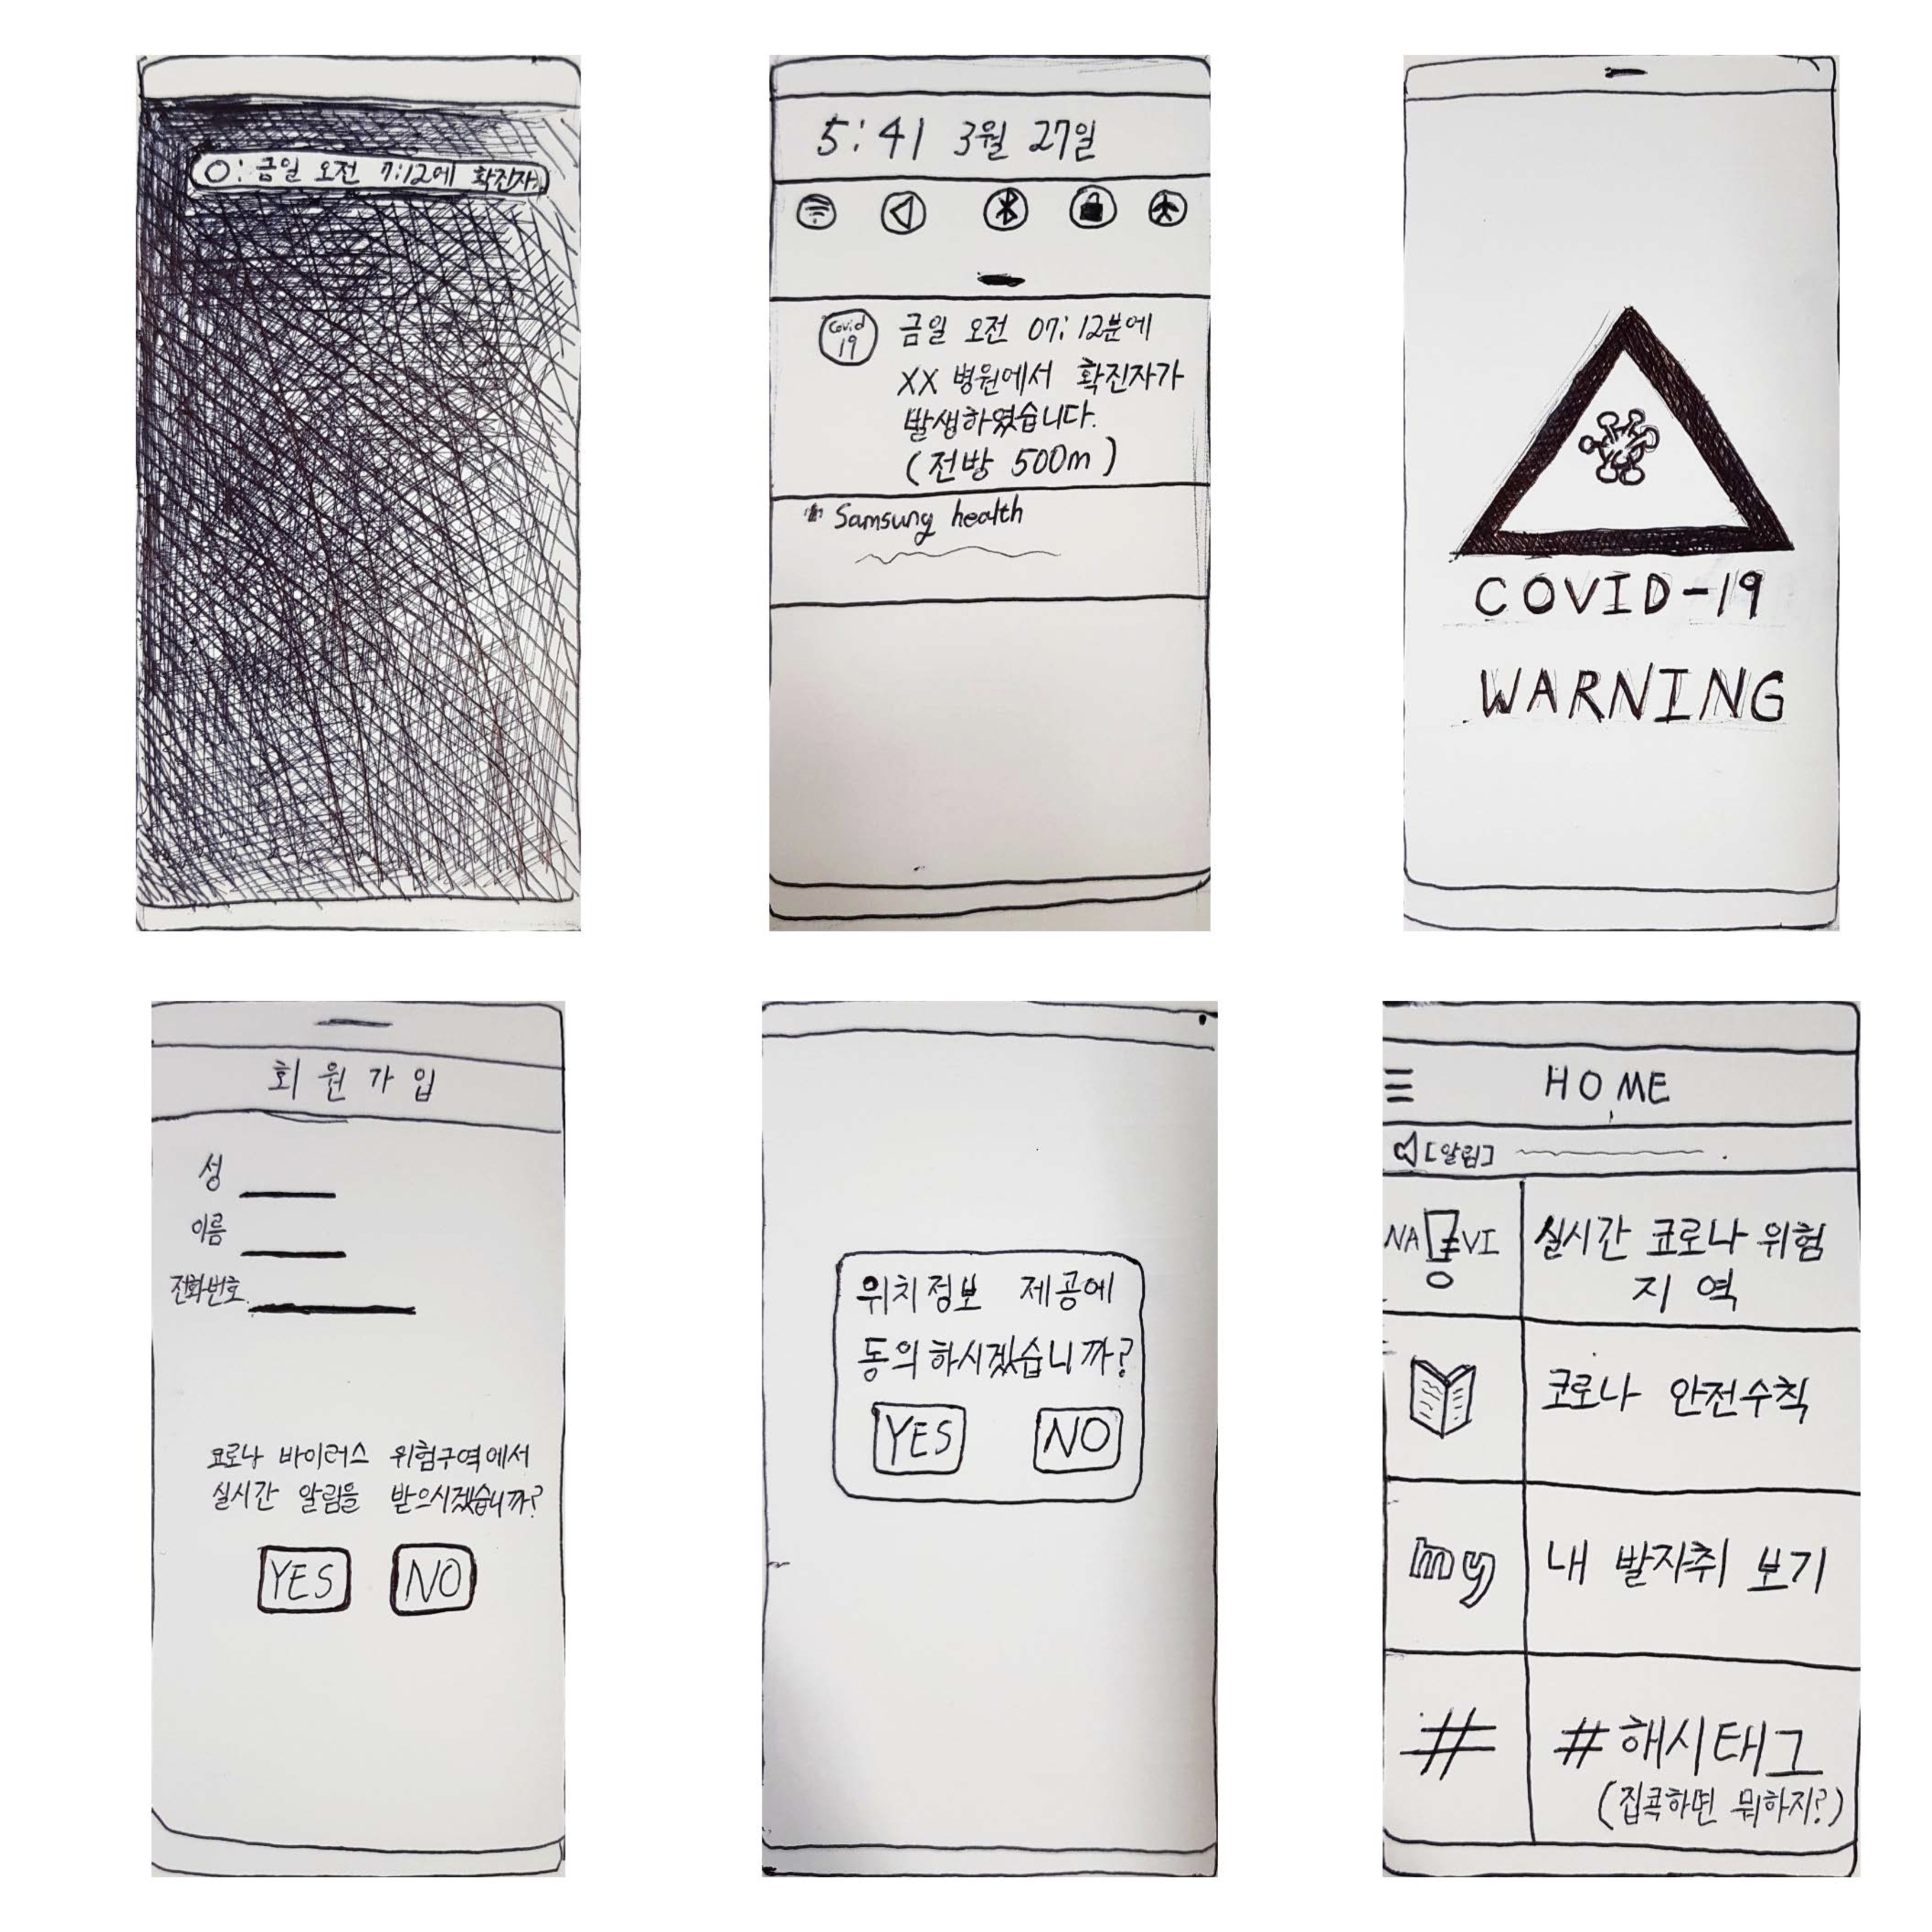 O: 금일 오전 7:12에 확진자
5:41 3월 27일
Covid
19
금일 오전 07:12분에
XX 병원에서 확진자가
발생하였습니다.
(전방 500m)
Samsung health
COVID-19
WARNING
회원가입
성
이름
전화번호
코로나 바이러스 위험구역에서
실시간 알림을 받으시겠습니까?
YES NO
위치정보 제공에
동의하시겠습니까?
YES NO
HOME
[알림]
NA VI
실시간 코로나 위험
지역
코로나 안전수칙
my
내 발자취 보기
#
#해시태그
(집콕하면 뭐하지?)